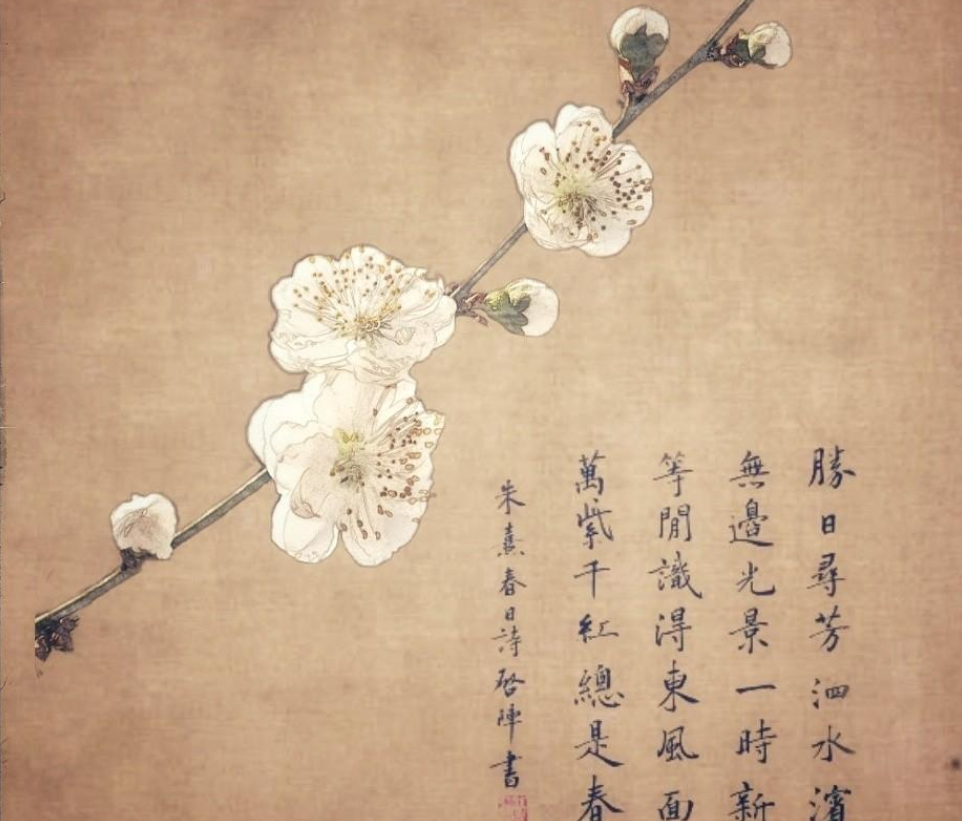 勝日尋芳泗水濱
無邊光景一時新
等閒識得東風面
萬紫千紅總是春
朱熹春日詩啓陣書